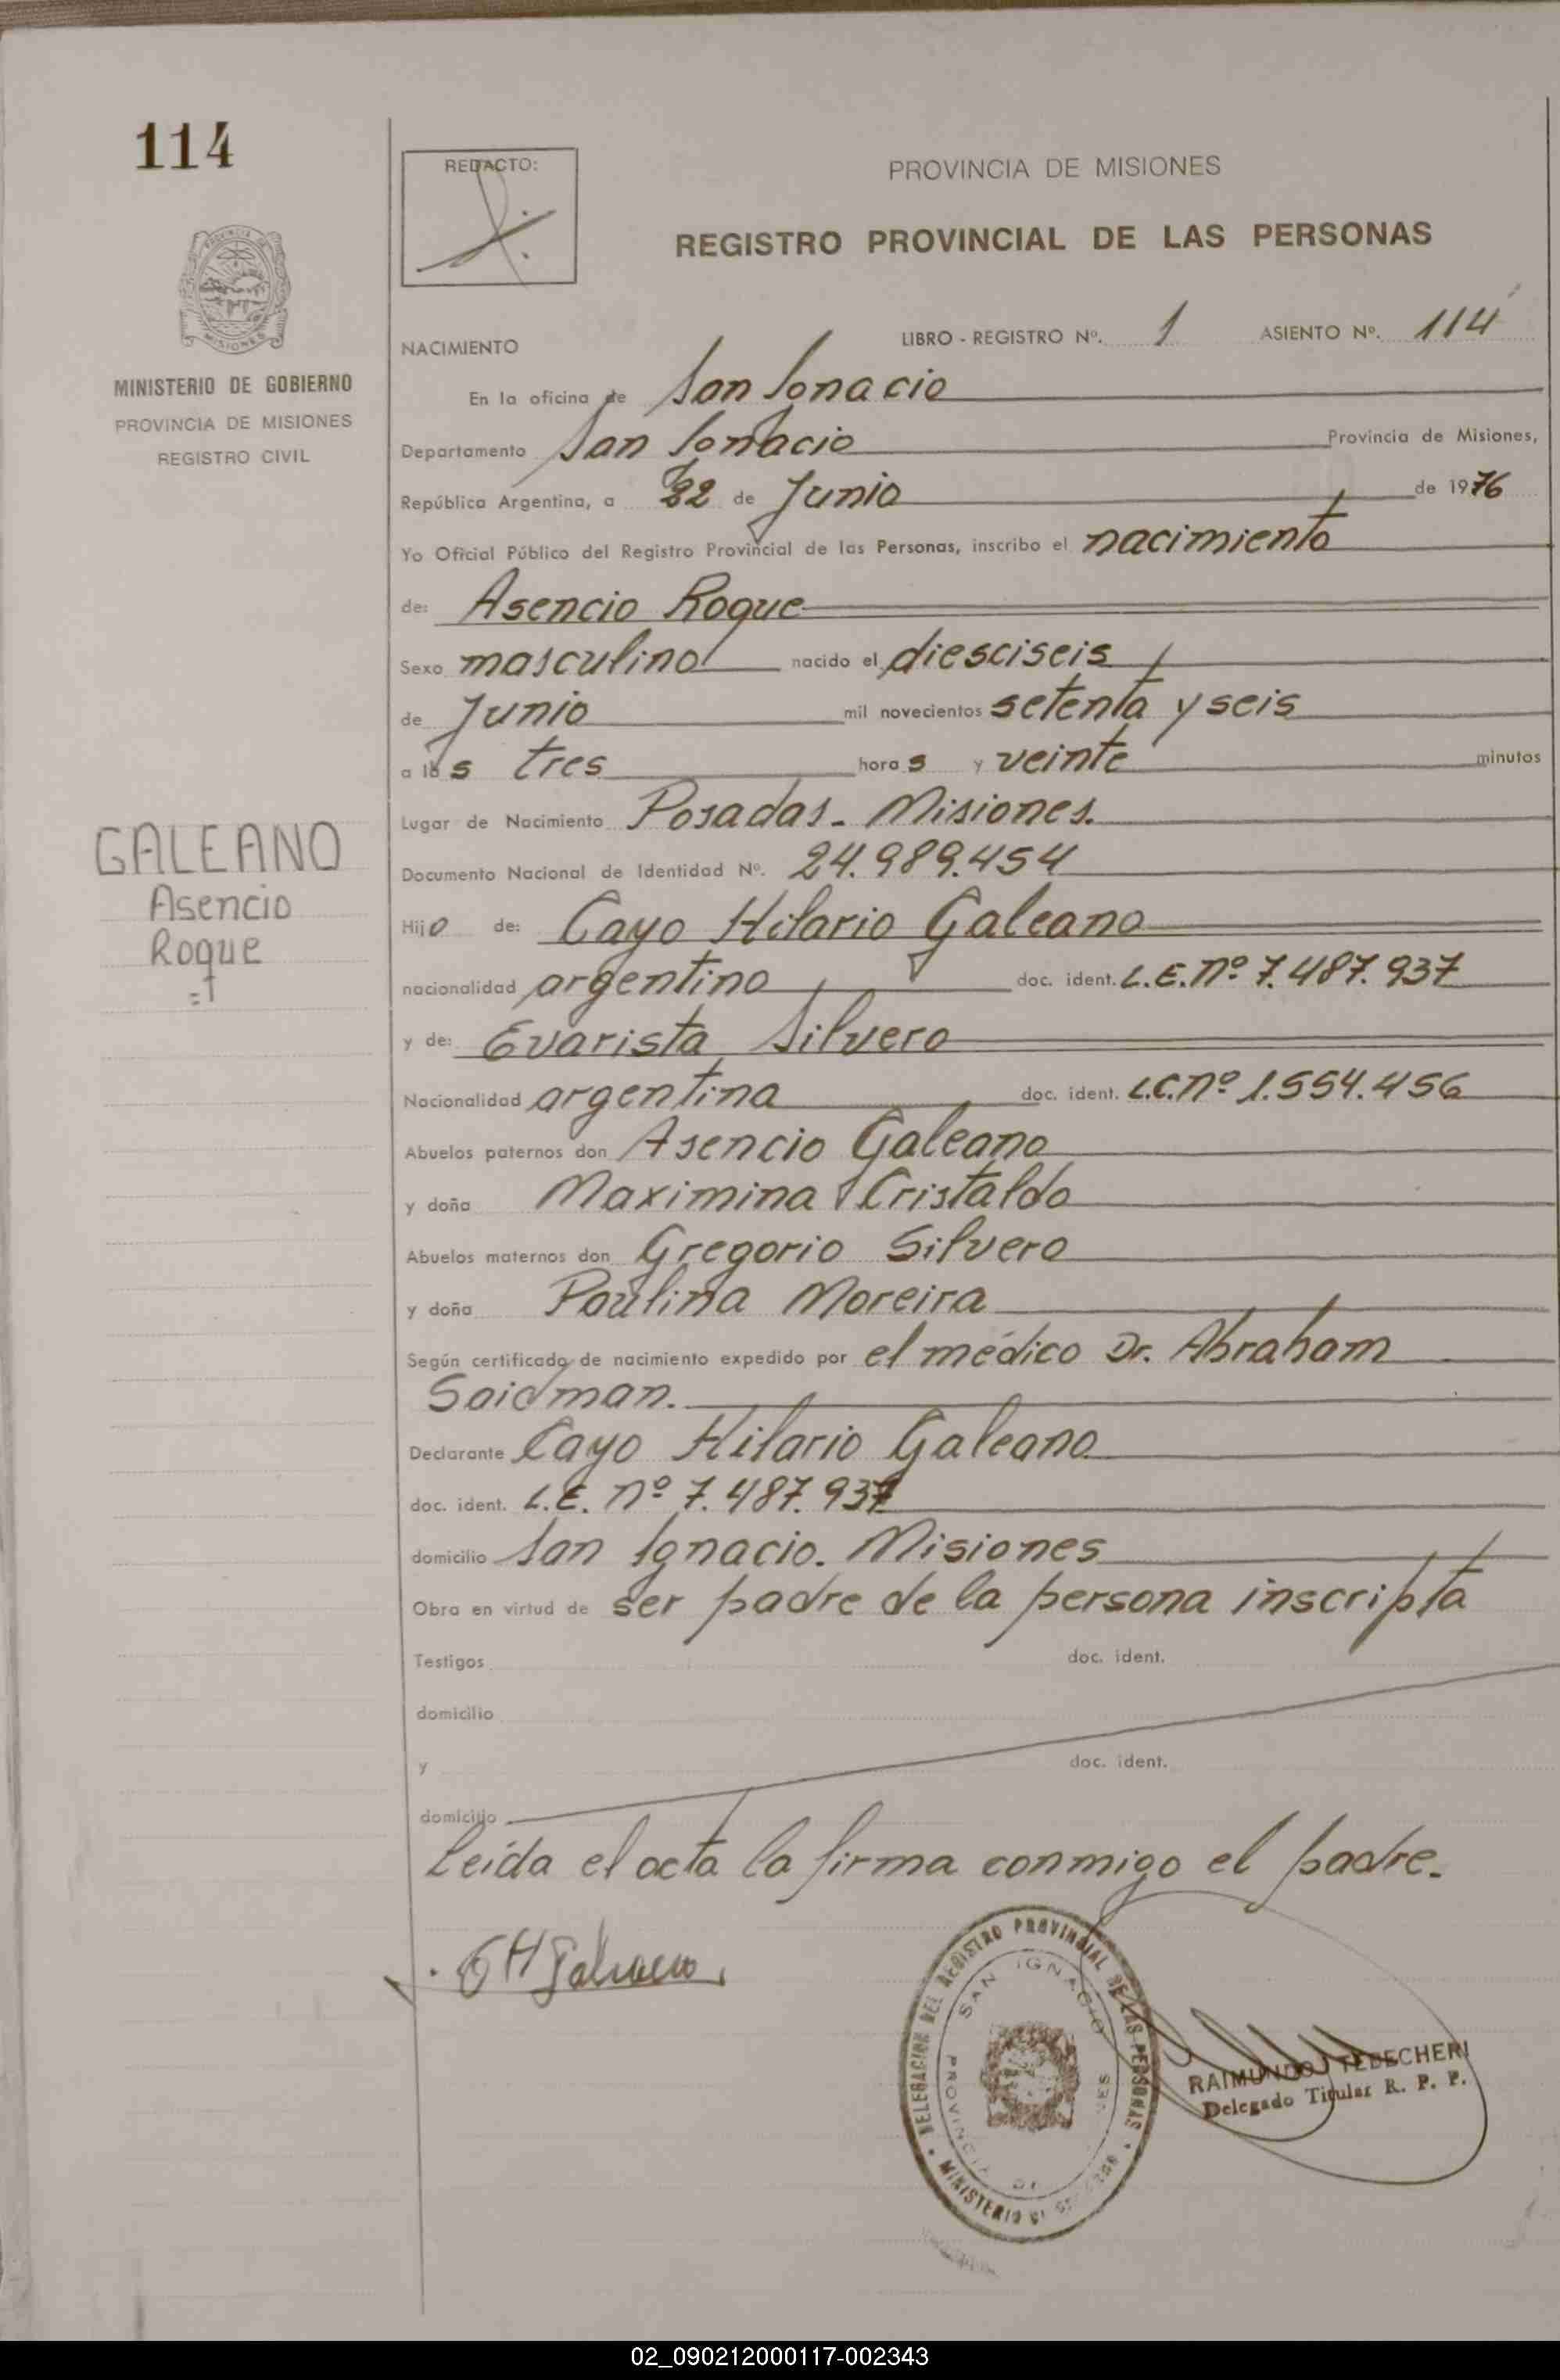 114
REDACTO:
PROVINCIA DE MISIONES
REGISTRO PROVINCIAL DE LAS PERSONAS
MISIONES
MINISTERIO DE GOBIERNO
PROVINCIA DE MISIONES
REGISTRO CIVIL
NACIMIENTO LIBRO - REGISTRO Nº. 1 ASIENTO Nº. 114
En la oficina de San Ignacio
Departamento San Ignacio Provincia de Misiones,
República Argentina, a 22 de Junio de 1976
Yo Oficial Público del Registro Provincial de las Personas, inscribo el nacimiento
de: Asencio Roque
Sexo masculino nacido el diesciseis
de Junio mil novecientos setenta y seis
a las tres horas y veinte minutos
Lugar de Nacimiento Posadas - Misiones.
Documento Nacional de Identidad Nº. 24.989.454
GALEANO
Asencio
Roque
=1
Hijo de: Cayo Hilario Galeano
nacionalidad argentino doc. ident. L.E. nº 7.487.937
y de: Evarista Silvero
Nacionalidad argentina doc. ident. L.C. nº 1.554.456
Abuelos paternos don Asencio Galeano
y doña Maximina Cristaldo
Abuelos maternos don Gregorio Silvero
y doña Paulina Moreira
Según certificado de nacimiento expedido por el médico Dr. Abraham
Saidman.
Declarante Cayo Hilario Galeano
doc. ident. L.E. nº 7.487.937
domicilio San Ignacio. Misiones
Obra en virtud de ser padre de la persona inscripta
Testigos doc. ident.
domicilio
y doc. ident.
domicilio
Leída el acta la firma conmigo el padre.
CHGaleano
DELEGACION DEL REGISTRO PROVINCIAL DE LAS PERSONAS
SAN IGNACIO
PROVINCIA DE
MINISTERIO
RAIMUNDO J TEBECHERI
Delegado Titular R. P. P.
02_090212000117-002343